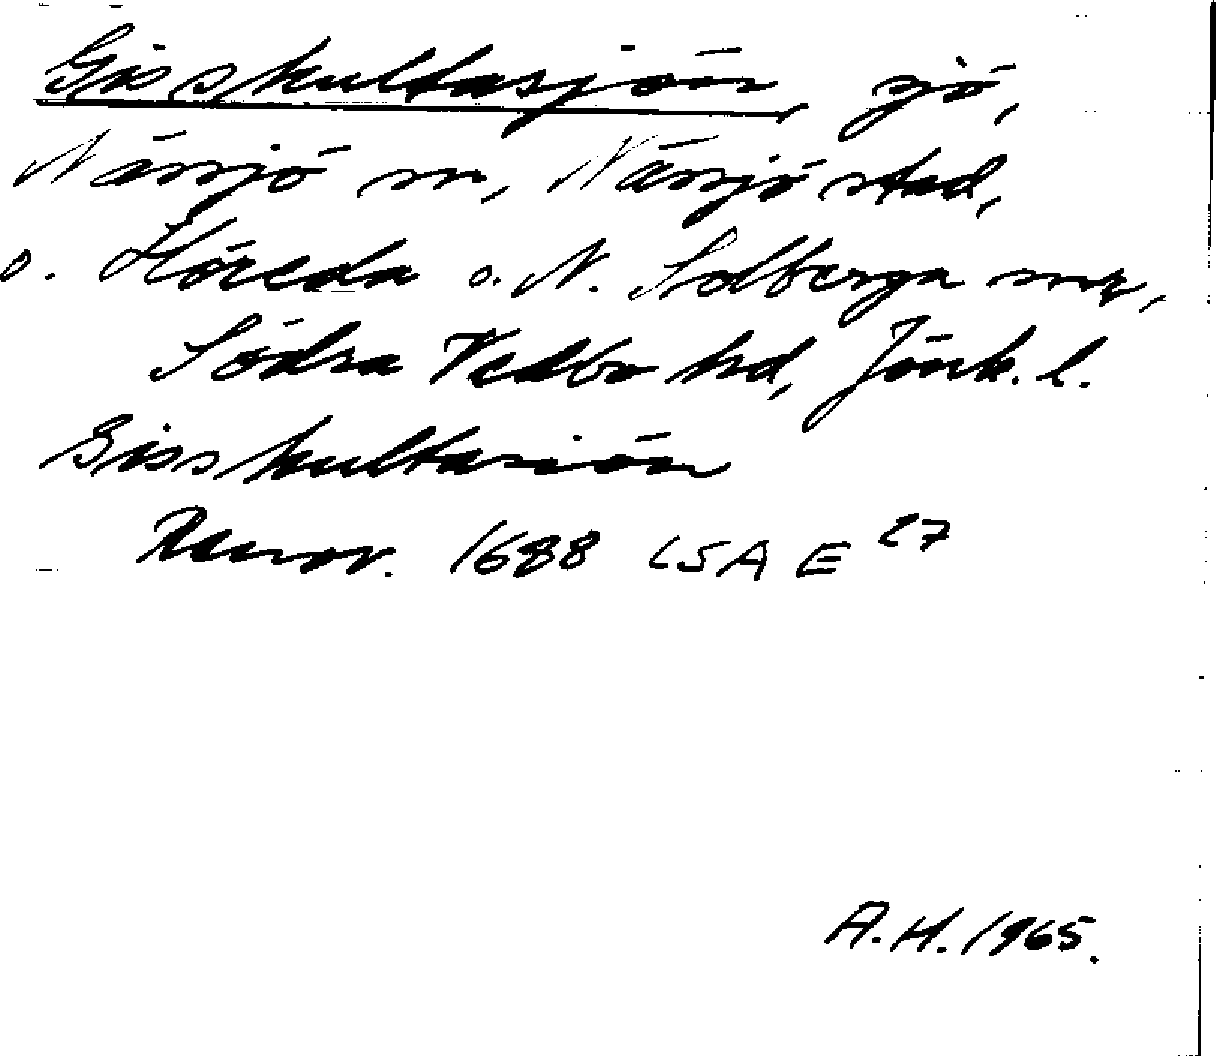 Gisshultasjön, sjö,
Nässjö sn, Nässjö stad,
o. Höreda o. N. Solberga snr,
Södra Vedbo hd, Jönk. l.
Gisshultasiön
Renov. 1688 LSA E 27
A.H. 1965.